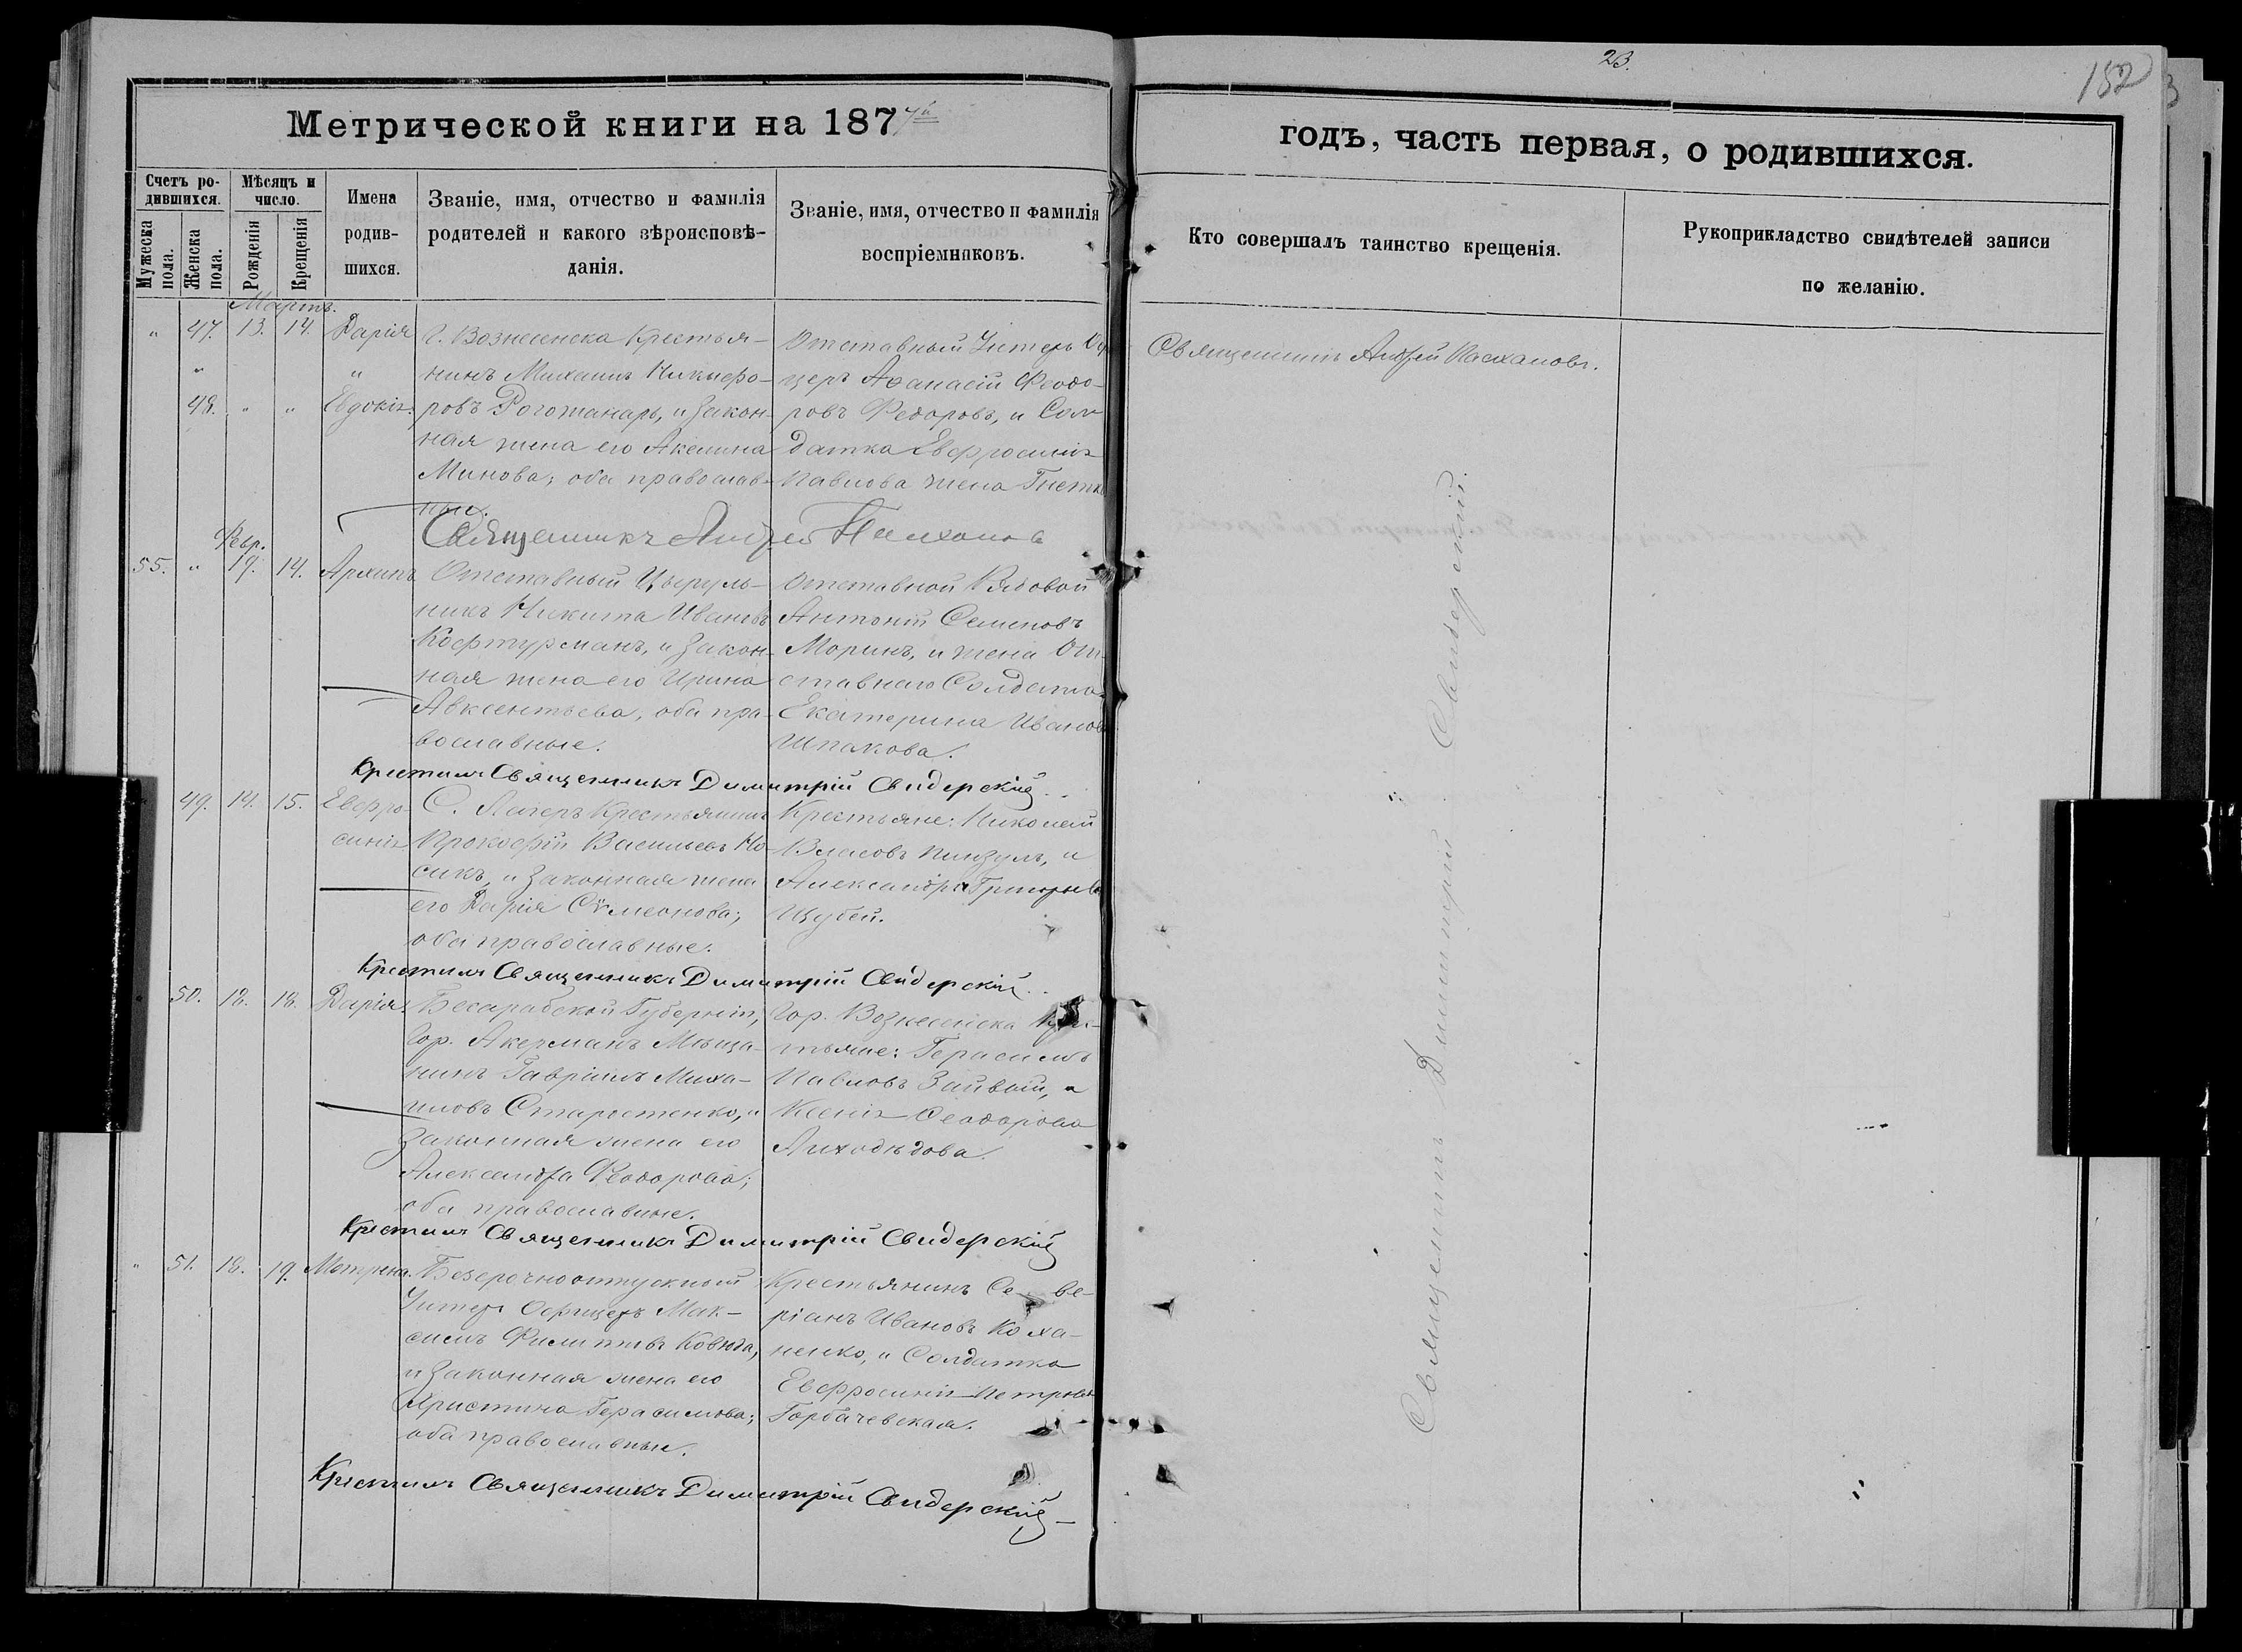 23.
152
Метрической книги на 1877й
годъ, часть первая, о родившихся.
Счетъ ро-
дившихся.
Мужеска пола.
Женска пола.
Мѣсяцъ и
число.
Рожденія
Крещенія
Имена
родив-
шихся.
Званіе, имя, отчество и фамилія
родителей и какого вѣроисповѣ-
данія.
Званіе, имя, отчество и фамилія
воспріемниковъ.
Кто совершалъ таинство крещенія.
Рукоприкладство свидѣтелей записи
по желанію.
Мартъ.
" 47. 13. 14. Дарія
48. " " Евдокія.
Г. Вознесенска Крестья-
нинъ Михаилъ Никифо-
ровъ Рогожанарь, и закон-
ная жена его Акилина
Минова; оба православ-
ные.
Отставный Унтеръ Оф
церъ Аѳанасій Ѳеодо-
ровъ Федоровъ, и Сол
датка Евфросинія
Павлова жена
Священникъ Андрей Пасхаловъ.
Священникъ Андрей Пасхаловъ
Февр.
55. " 19. 14. Архипъ
Отставный Цырюль-
никъ Никита Ивановъ
Кофтурманъ, и закон-
ная жена его Ирина
Авксентьева, оба пра-
вославные.
Отставной Рядовой
Антоній Семеновъ
Моринъ, и жена От-
ставнаго Солдата
Екатерина Иванова
Шпакова.
Крестилъ Священникъ Димитрій Свидерскій.
49. 14. 15. Евфро-
синія
С. Лагеръ Крестьянинъ
Прокофій Васильевъ Но-
сикъ, и законная жена
его Дарія Сѵмеонова;
оба православные.
Крестьяне: Николай
Власовъ Пинзулъ, и
Александра Григорьева
Щубей.
Крестилъ Священникъ Димитрій Свидерскій.
50. 18. 18. Дарія.
Бесарабской Губерніи,
Гор. Акерманъ Мѣща-
нинъ Гавріилъ Миха-
иловъ Старостенко, и
законная жена его
Александра Ѳеодорова;
оба православные.
Гор. Вознесенска Крес-
тьяне: Герасимъ
Павловъ Заивый, и
Ксенія Ѳеодорова
Лиходѣдова.
Крестилъ Священникъ Димитрій Свидерскій
" 51. 18. 19. Матрена.
Безсрочноотпускный
Унтеръ Офицеръ Мак-
симъ Филиповъ Ковюга,
и законная жена его
Христина Герасимова;
оба православные.
Крестьянинъ Се-ве-
ріанъ Ивановъ Коха-
ненко, и Солдатка
Евфросинія Петрова
Горбачевская.
Крестилъ Священникъ Димитрій Свидерскій
Священникъ Димитрій Свидерскій.